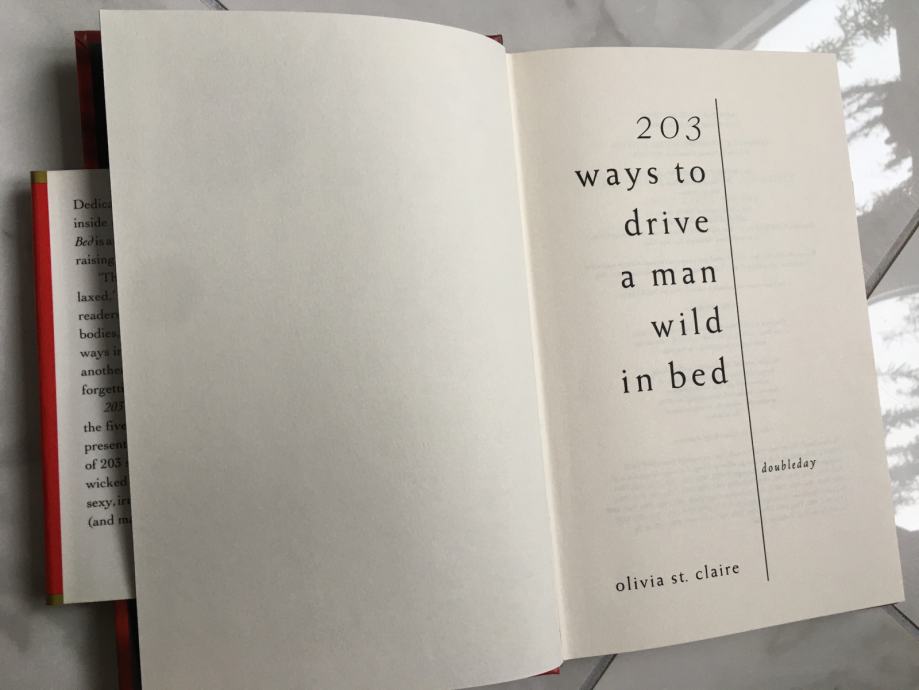 Dedica
inside
Bed is a
raising
"Th
laxed."
reader
bodies.
ways in
anothe
forgett
203
the five
present
of 203
wicked
sexy, irr
(and ma
203
ways to
drive
a man
wild
in bed
doubleday
olivia st. claire